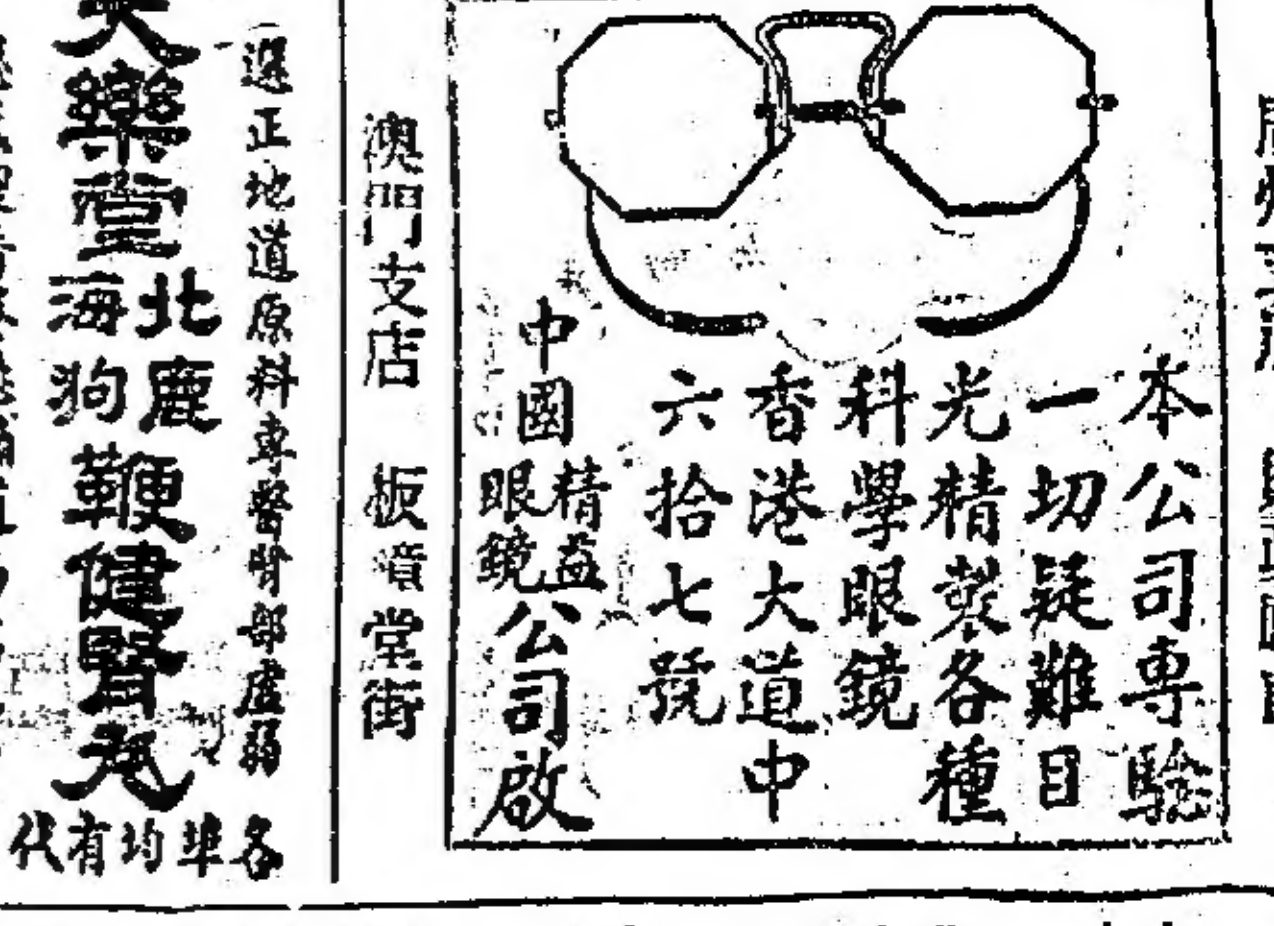 本公司專驗
一切疑難目
光精製各種
科學眼鏡
香港大道中
六拾七號
中國精益眼鏡公司啟
澳門支店 板樟堂街
選正地道原料專醫腎部虛弱
樂堂北鹿海狗鞭健腎丸
各埠均有代